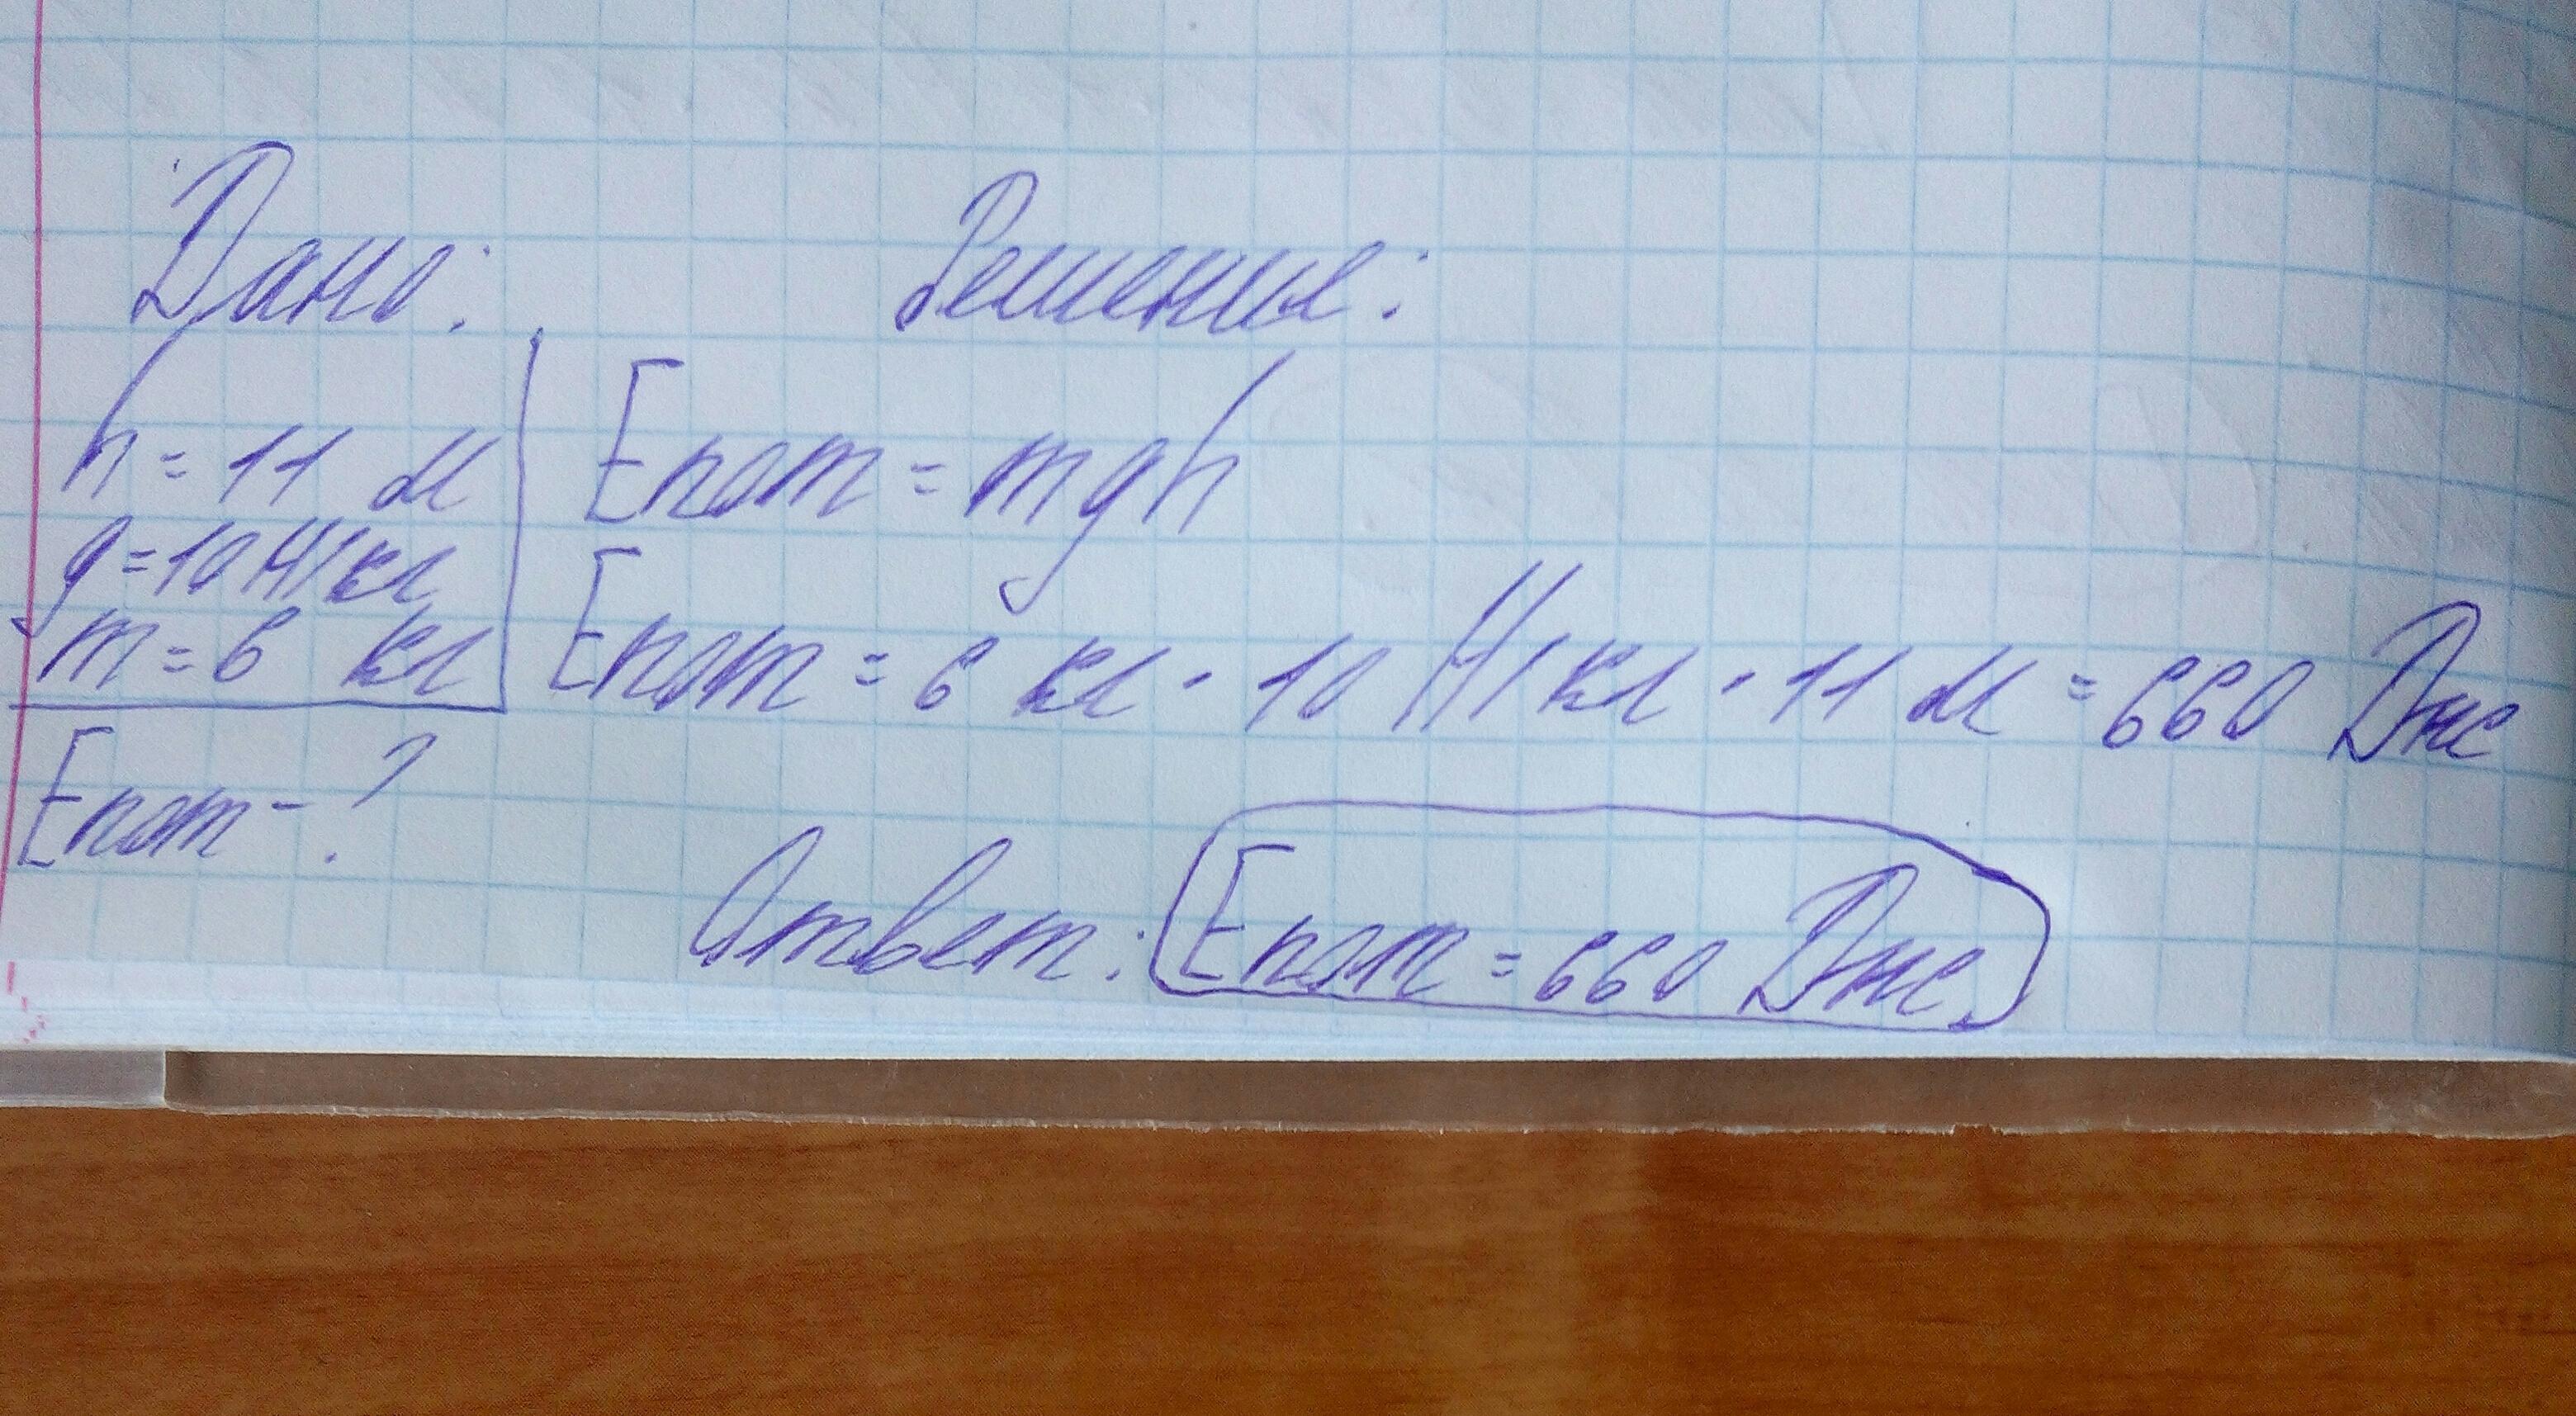 Дано:
Решение:
h = 11 м
g = 10 Н/кг
m = 6 кг
Eпот - ?
Eпот = mgh
Eпот = 6 кг · 10 Н/кг · 11 м = 660 Дж
Ответ: Eпот = 660 Дж.